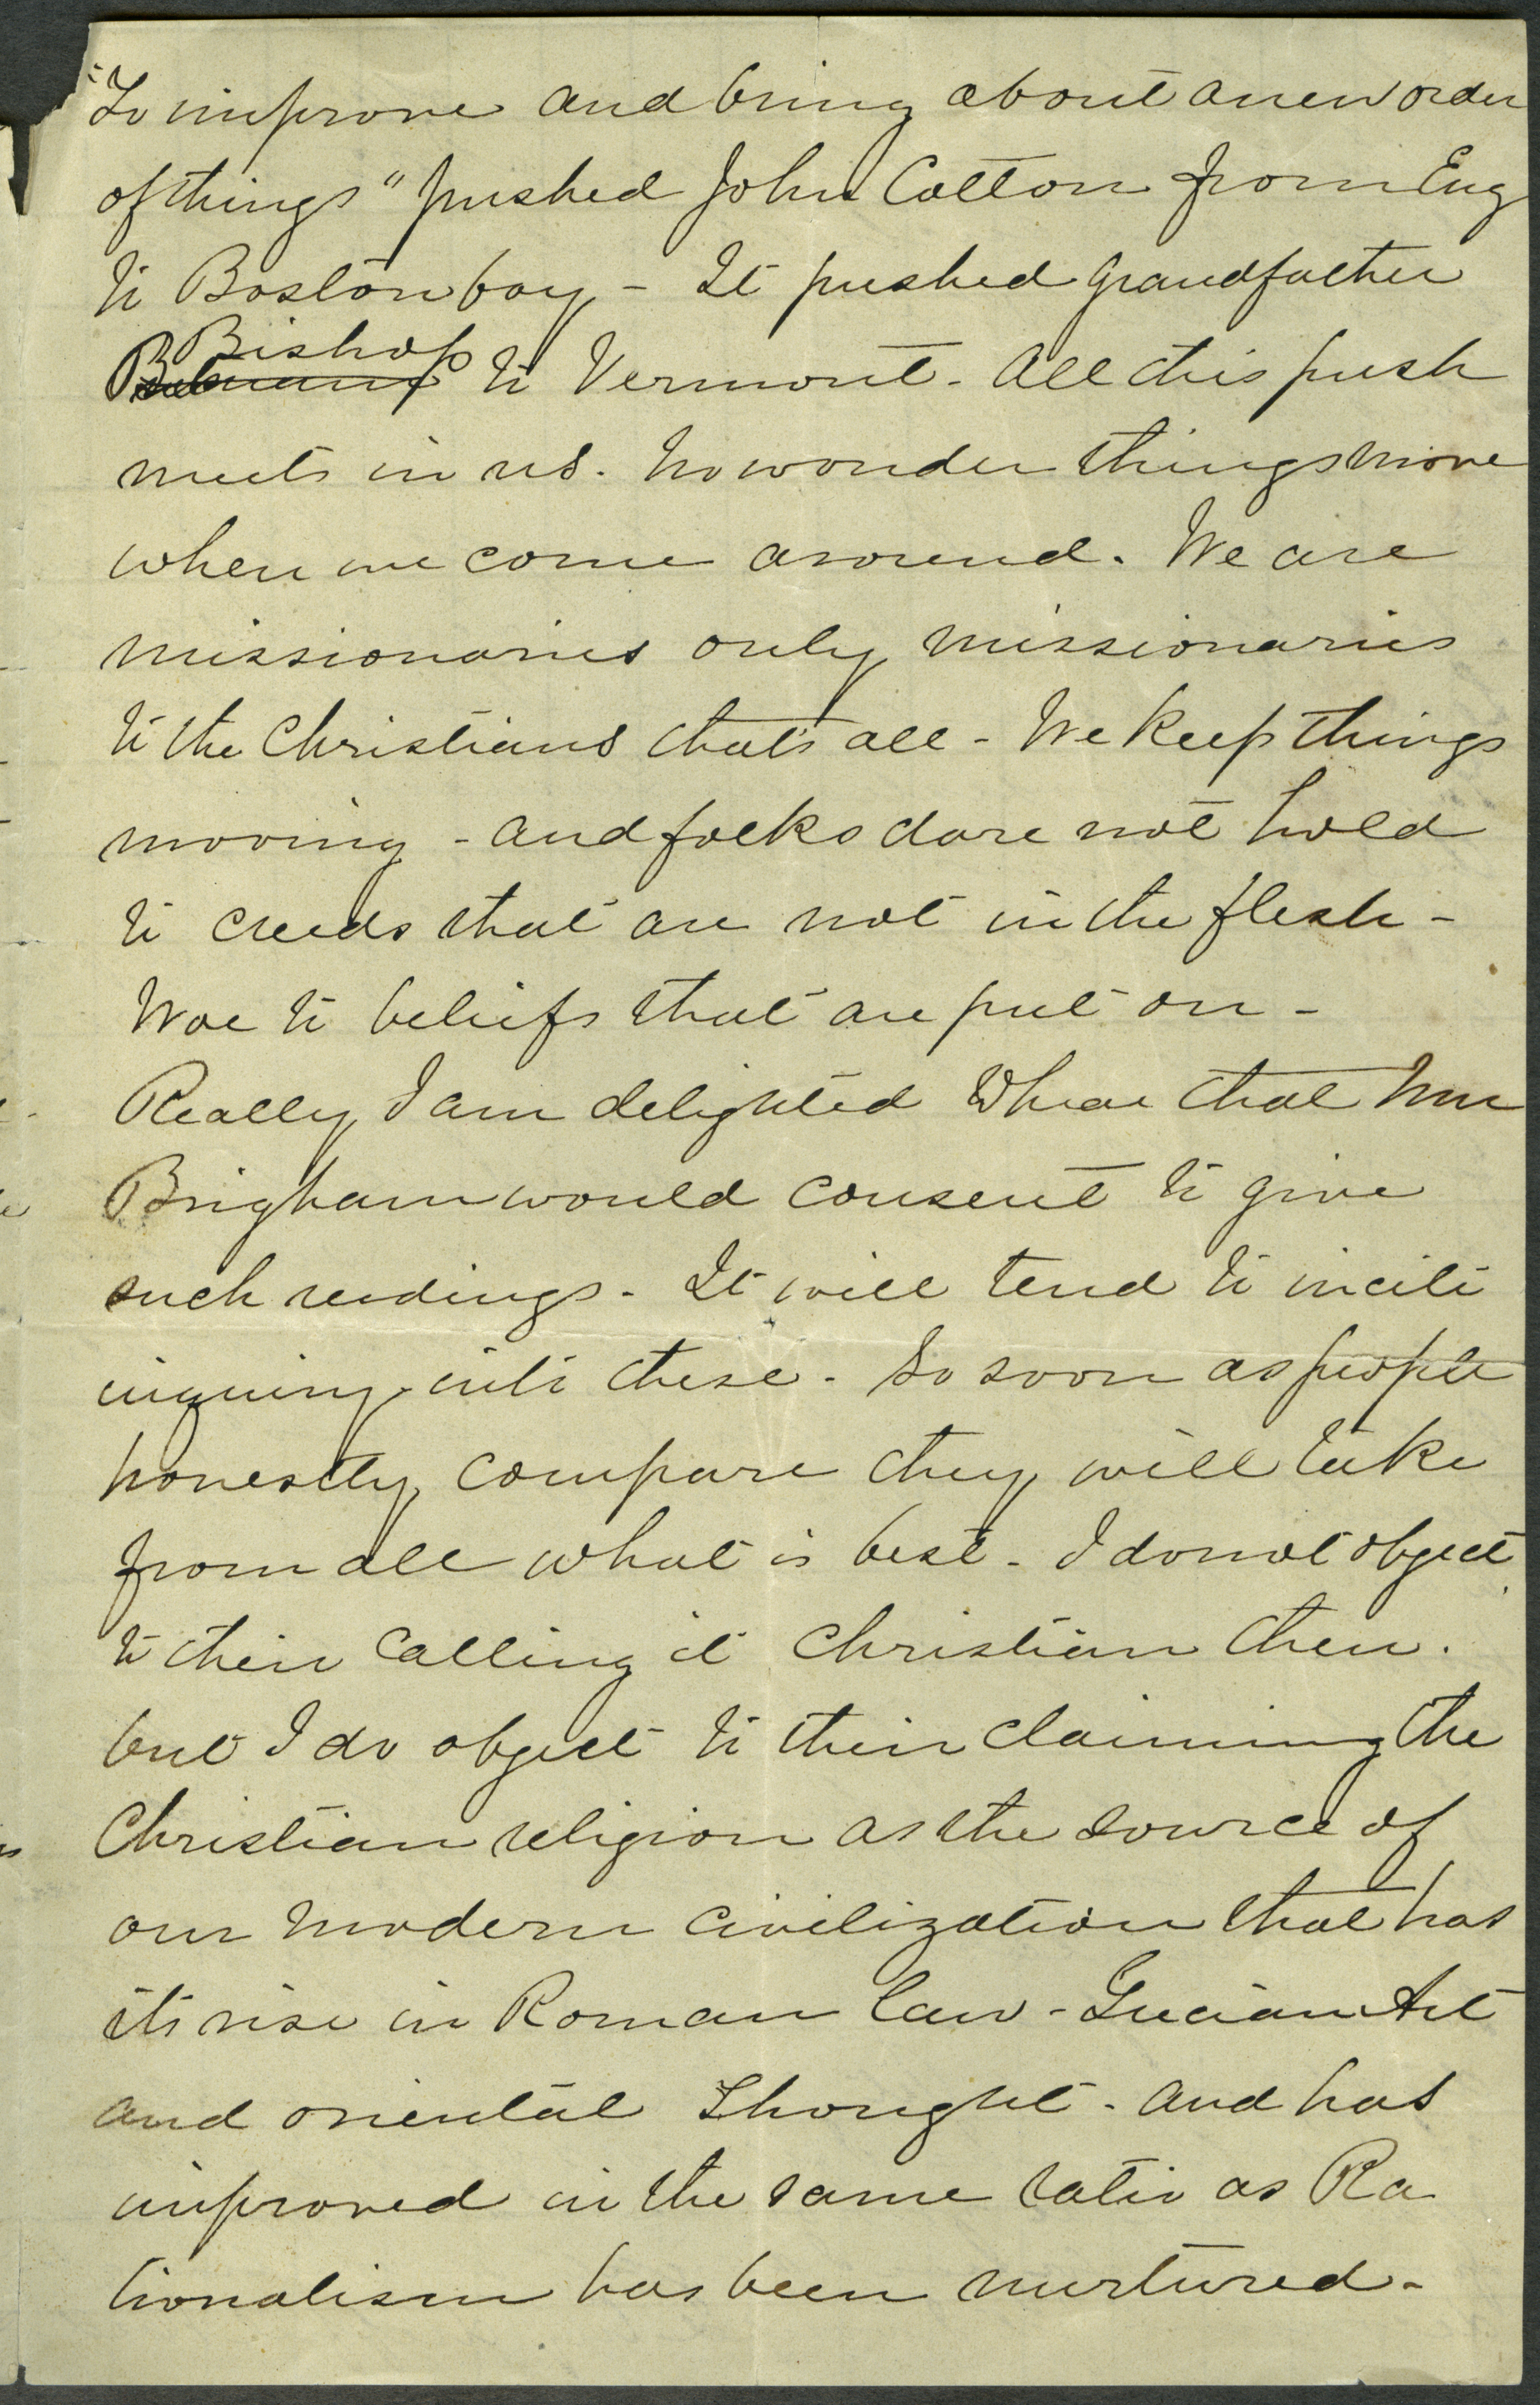 "To improve and bring about a new order
of things" pushed John Cotton from Eng
to Boston bay - It pushed grandfather
Bishop
to Vermont - All this push
meets in us. No wonder things move
when we come around. We are
missionaries only missionaries
to the Christians that's all - We keep things
moving - and folks dare not hold
to creeds that are not in the flesh -
Woe to beliefs that are put on -
Really I am delighted to hear that Mrs
Brigham would consent to give
such readings - It will tend to incite
inquiry into these - So soon as people
honestly compare they will take
from all what is best - I do not object
to their calling it Christian then.
but I do object to their claiming the
Christian religion as the source of
our modern civilization that has
its rise in Roman law - Grecian Art
and oriental Thought - and has
improved in the same ratio as Ra
tionalism has been nurtured -